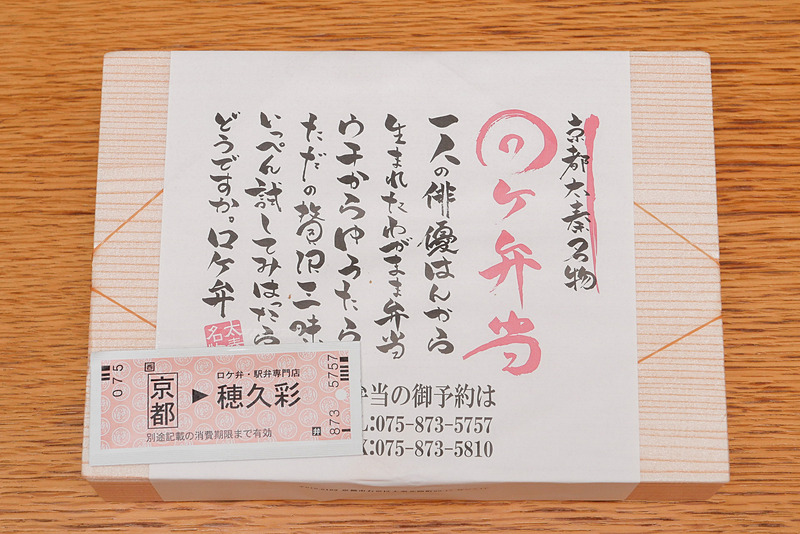 京都太秦名物
ロケ弁当
一人の俳優はんから
生まれたわがまま弁当
ウチからゆうたら
ただの贅沢三昧
いっぺん試してみはったら
どうですか。ロケ弁
弁当の御予約は
:075-873-5757
:075-873-5810
075
西
京都▶穂久彩
ロケ弁・駅弁専門店
別途記載の消費期限まで有効
873 5757